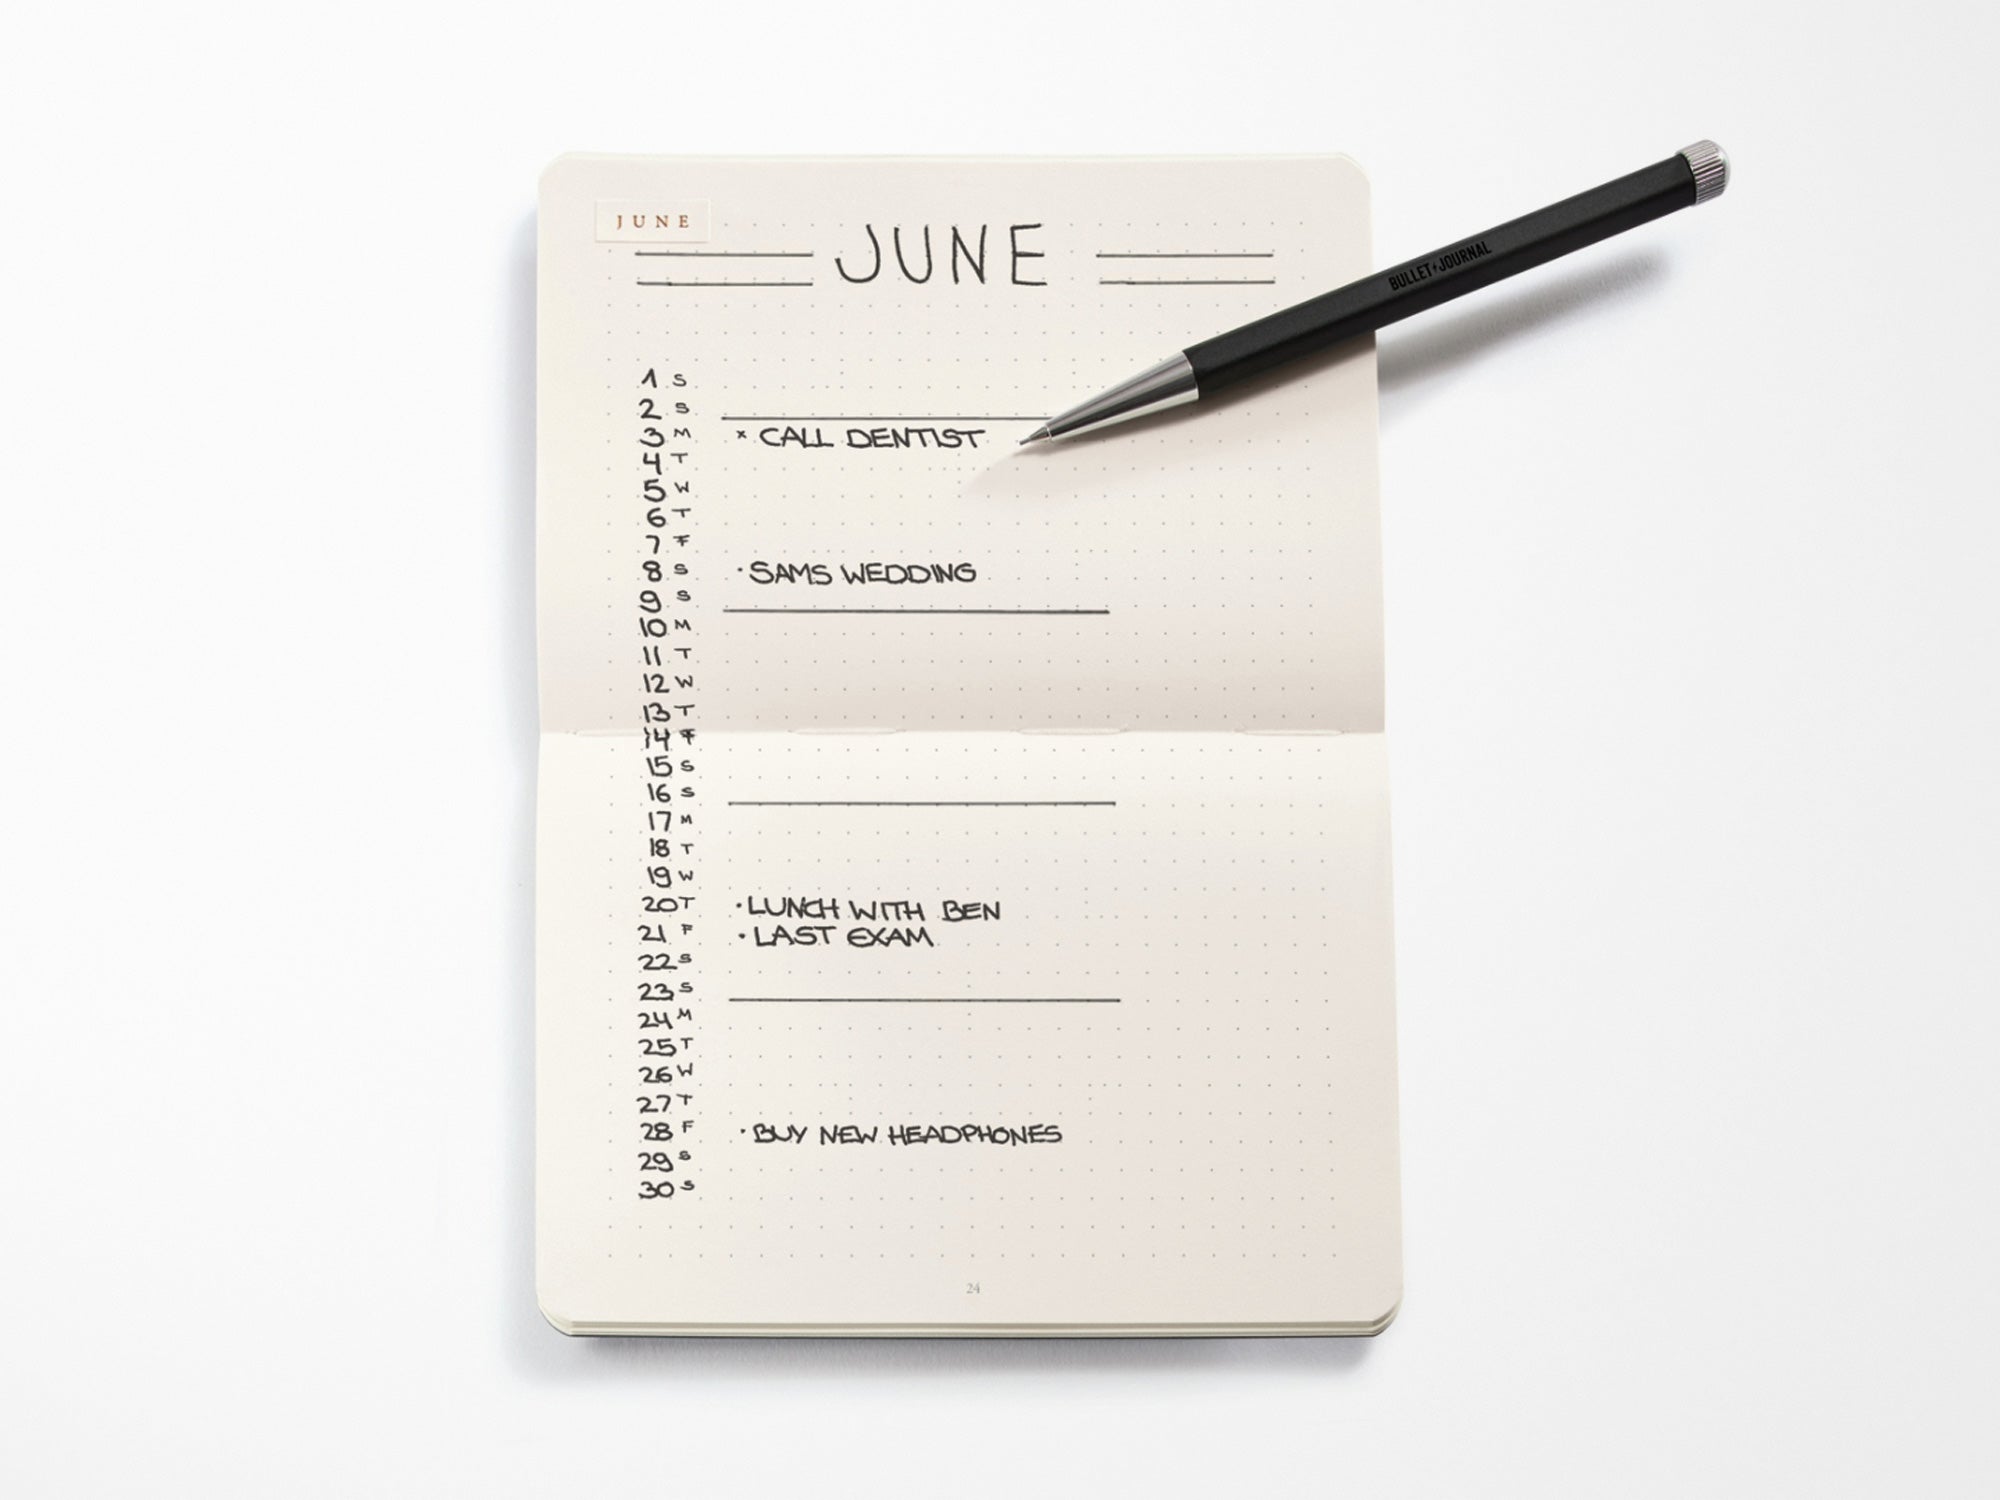 JUNE
JUNE
BULLET JOURNAL
1 S
2 S
3 M × CALL DENTIST
4 T
5 W
6 T
7 F
8 S · SAMS WEDDING
9 S
10 M
11 T
12 W
13 T
14 F
15 S
16 S
17 M
18 T
19 W
20 T · LUNCH WITH BEN
21 F · LAST EXAM
22 S
23 S
24 M
25 T
26 W
27 T
28 F · BUY NEW HEADPHONES
29 S
30 S
24